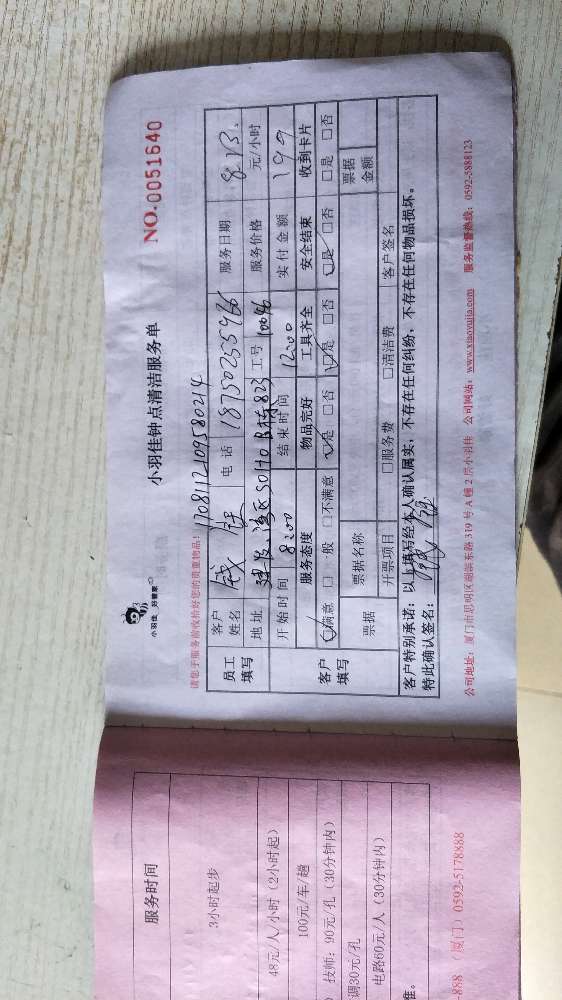 小羽佳 好管家
小羽佳钟点清洁服务单
NO.0051640
请您于服务前收拾好您的贵重物品! 1708112109580214
员工填写 客户姓名 钱 电话 18750235966 服务日期 8.13.
地址 SOHO B栋823 工号 10096 服务价格 元/小时
客户填写 开始时间 8:00 结束时间 12:00 实付金额 199
服务态度 物品完好 工具齐全 安全结束 收到卡片
满意 □一般 □不满意 是 □否 是 □否 是 □否 □是 □否
票据 票据名称 票据金额
开票项目 □服务费 □清洁费 客户签名
客户特别承诺: 以上填写经本人确认属实, 不存在任何纠纷, 不存在任何物品损坏。
特此确认签名:
公司地址: 厦门市思明区湖滨东路319号A幢2层小羽佳 公司网站: www.xiaoyujia.com 服务监督热线: 0592-5888123
服务时间
3小时起步
48元/人/小时 (2小时起)
100元/车/趟
技师: 90元/孔 (30分钟内)
调30元/孔
电路60元/人 (30分钟内)
准。
888 (厦门) 0592-5178888